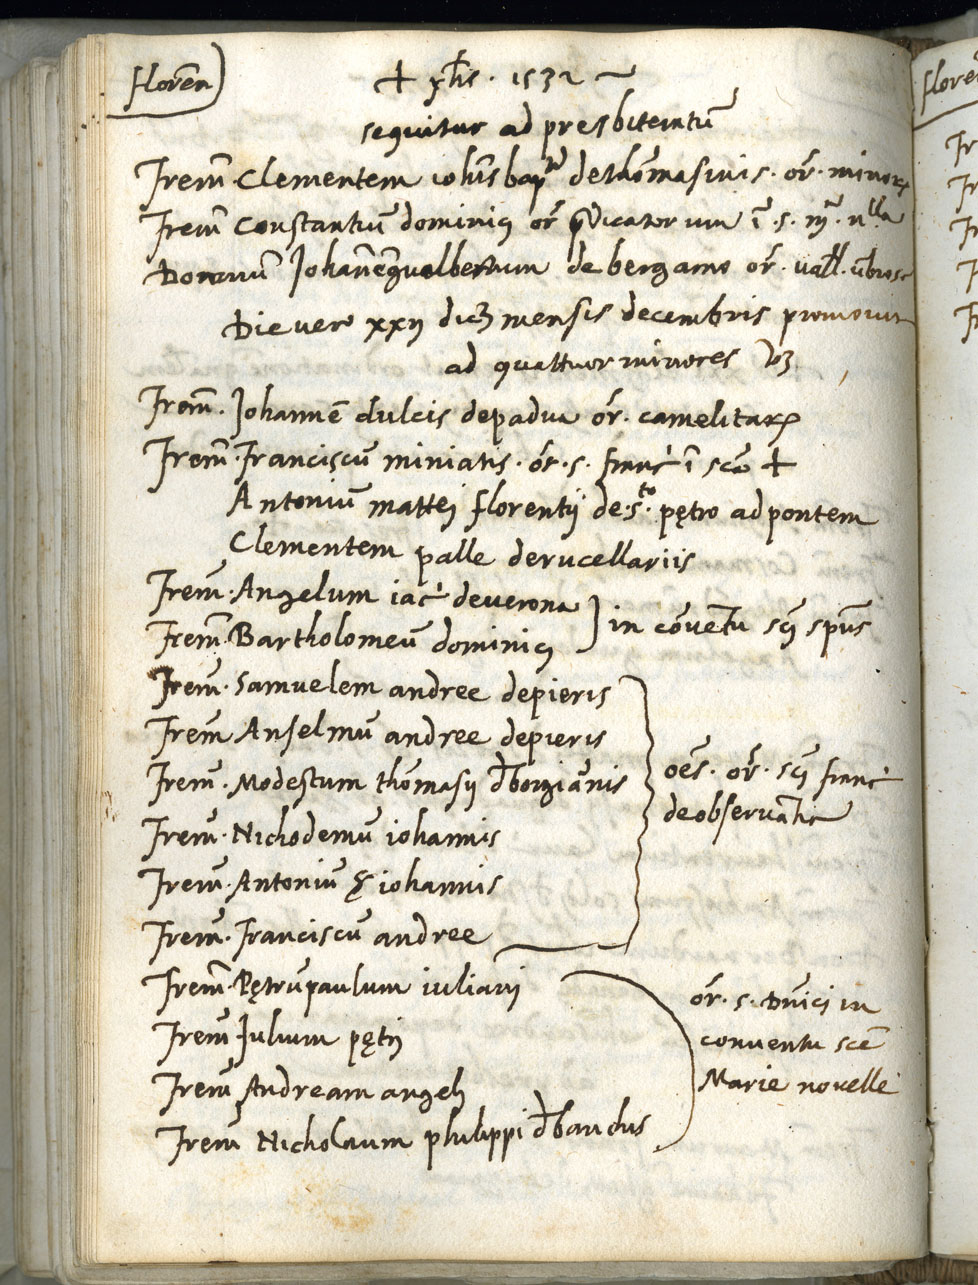 florēn
+ yhs · 1532
sequitur ad presbiteratū
Frem̄ Clementem iohis bap̄te de thōmasinis · or̄ · minorꝝ
Frem̄ Constantiū dominici or̄ p̄dicatorum ī · s · m̄ · nlla
Donnum Johanēgualbertum de bergamo or̄ · vall · ūbrose
Die vero xxij dicti mensis decembris promovit
ad quattuor minores vꝫ
Frem̄ · Johannē dulcis de padua or̄ · camelitarꝝ
Frem̄ · Franciscū miniatis · or̄ · s · franc̄ ī scā +
Antoniū mattei florentij de · sto · pętro ad pontem
Clementem palle de rucellariis
Frem̄ · Angelum iac̄ de verona
Frem̄ · Bartholomeū dominici
in cōvētu sci spūs
Frem̄ · Samuelem andree de pieris
Frem̄ Anselmū andree de pieris
Frem̄ · Modestum thōmasij d̄ borgiānis
Frem̄ · Nichodemū iohannis
Frem̄ · Antoniū iohannis
Frem̄ · Franciscū andree
oēs · or̄ · sci franc̄
de observātie
Frem̄ · Pętrūpaulum iuliani
Frem̄ Julium pętri
Frem̄ Andream angeli
Frem̄ Nicholaum philippi d̄ bandis
or̄ · s · Dn̄ici in
conventu scē
Marie novelle